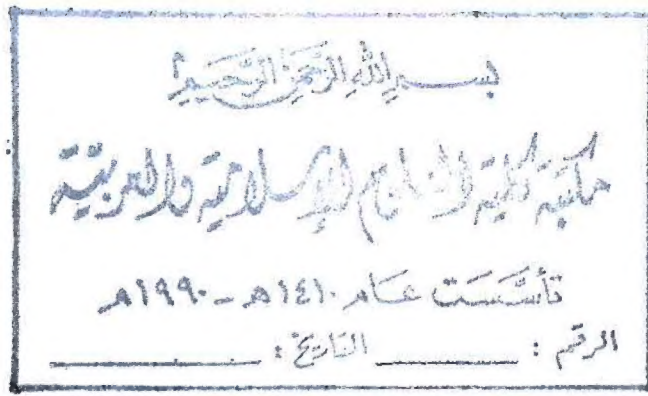 بسم الله الرحمن الرحيم
مكتبة كلية العلوم الإسلامية والعربية
تأسست عام ١٤١٠هـ - ١٩٩٠م
الرقم : ________ التاريخ : ________